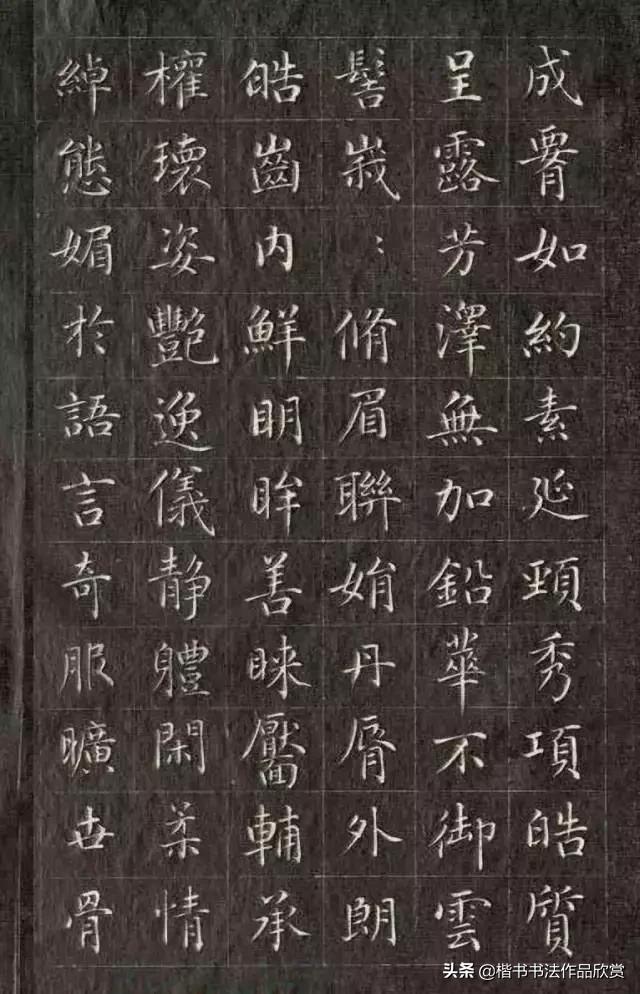 成如約素延頸秀項皓質
呈露芳澤無加鉛華不御雲
髻峩〻脩眉聯娟丹脣外朗
皓齒内鮮明眸善睞靨輔承
權瓌姿豔逸儀静軆閑柔情
綽態媚於語言奇服曠世骨
头条 @楷书书法作品欣赏